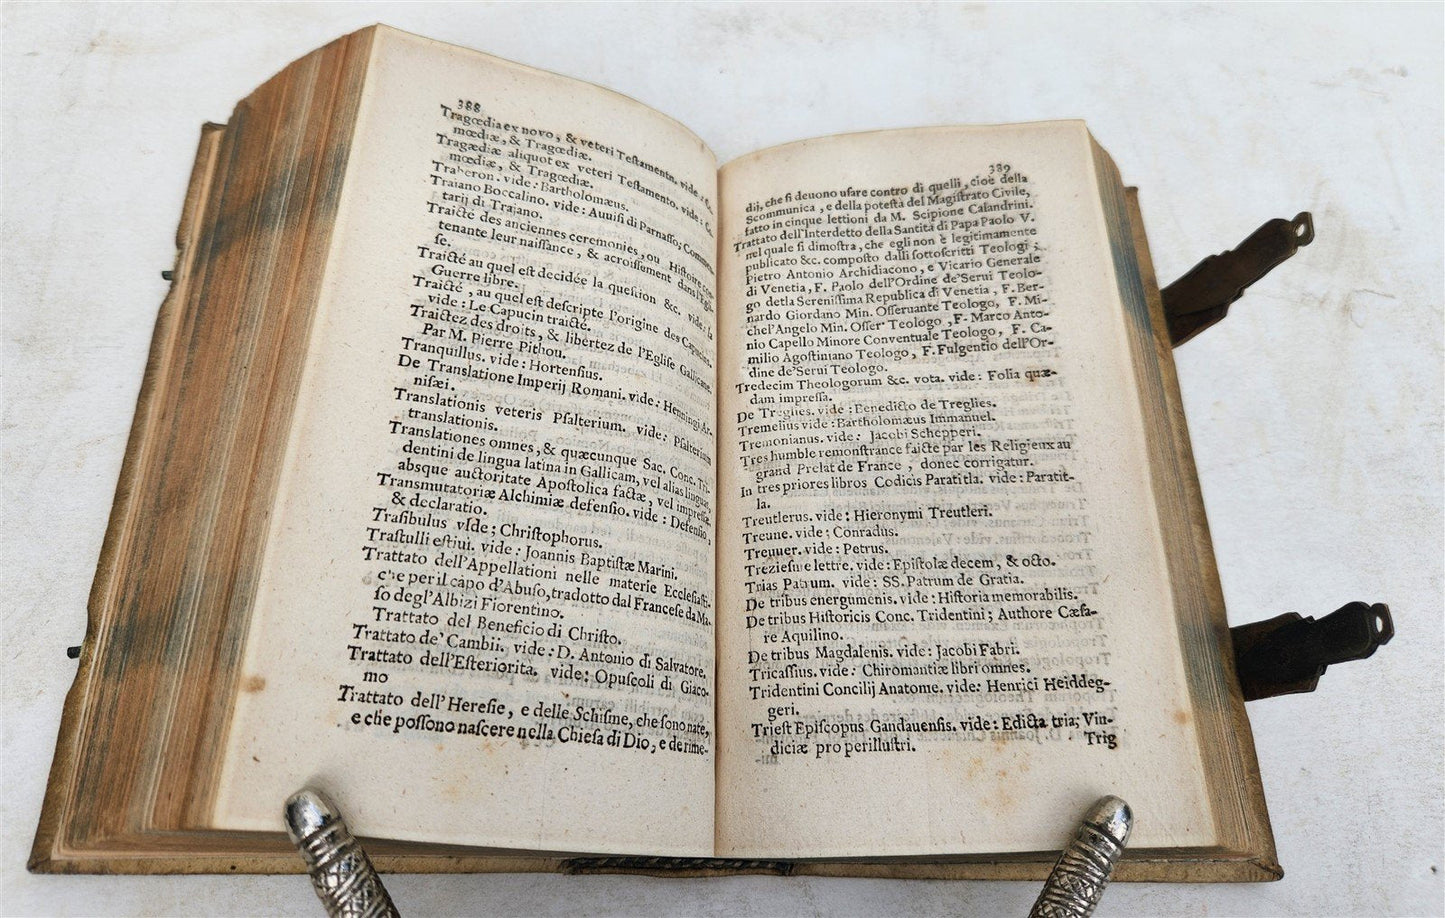 388
Tragœdia ex novo, & veteri Testamento. vide: Co-
mœdiæ, & Tragœdiæ.
Tragædiæ aliquot ex veteri Testamento. vide: Co-
mœdiæ, & Tragœdiæ.
Traberon. vide: Bartholomæus.
Traiano Boccalino. vide: Auuisi di Parnasso; Commen-
tarij di Trajano.
Traicté des anciennes ceremonies, ou Histoire con-
tenante leur naissance, & acroissement dans l'Egli-
se.
Traicté au quel est decidée la question &c. vide: la
Guerre libre.
Traicté, au quel est descripte l'origine des Capucins.
vide: Le Capucin traicté.
Traictez des droits, & libertez de l'Eglise Gallicane.
Par M. Pierre Pithou.
Tranquillus. vide: Hortensius.
De Translatione Imperij Romani. vide: Henningi Ar-
nisæi.
Translationis veteris Psalterium. vide: Psalterium
translationis.
Translationes omnes, & quæcunque Sac. Conc. Tri-
dentini de lingua latina in Gallicam, vel alias linguas,
absque auctoritate Apostolica factæ, vel impressæ.
Transmutatoriæ Alchimiæ defensio. vide: Defensio,
& declaratio.
Trasibulus vide; Christophorus.
Trastulli estiui. vide: Joannis Baptistæ Marini.
Trattato dell'Appellationi nelle materie Ecclesiasti-
che per il capo d'Abuso, tradotto dal Francese da Ma-
so degl'Albizi Fiorentino.
Trattato del Beneficio di Christo.
Trattato de' Cambii. vide: D. Antonio di Salvatore.
Trattato dell'Esteriorita. vide: Opuscoli di Giaco-
mo
Trattato dell'Heresie, e delle Schisme, che sono nate,
e che possono nascere nella Chiesa di Dio, e de rime-
389
dij, che si deuono usare contro di quelli, cioè della
Scommunica, e della potesta del Magistrato Civile,
fatto in cinque lettioni da M. Scipione Calandrini.
Trattato dell'Interdetto della Santità di Papa Paolo V.
nel quale si dimostra, che egli non è legitimamente
publicato &c. composto dalli sottoscritti Teologi;
Pietro Antonio Archidiacono, e Vicario Generale
di Venetia, F. Paolo dell'Ordine de'Serui Teolo-
go detla Serenissima Republica di Venetia, F. Ber-
nardo Giordano Min. Osseruante Teologo, F. Mi-
chel'Angelo Min. Osser Teologo, F. Marco Anto-
nio Capello Minore Conventuale Teologo, F. Ca-
milio Agostiniano Teologo, F. Fulgentio dell'Or-
dine de'Serui Teologo.
Tredecim Theologorum &c. vota. vide: Folia quæ-
dam impressa.
De Treglies. vide: Benedicto de Treglies.
Tremelius vide: Bartholomæus Immanuel.
Tremonianus. vide: Jacobi Schepperi.
Tres humble remonstrance faicte par les Religieux au
grand Prelat de France, donec corrigatur.
In tres priores libros Codicis Paratitla. vide: Paratit-
la.
Treutlerus. vide: Hieronymi Treutleri.
Treune. vide; Conradus.
Treuuer. vide: Petrus.
Treziesme lettre. vide: Epistolæ decem, & octo.
Trias Patrum. vide: SS. Patrum de Gratia.
De tribus energumenis. vide: Historia memorabilis.
De tribus Historicis Conc. Tridentini; Authore Cæsa-
re Aquilino.
De tribus Magdalenis. vide: Jacobi Fabri.
Tricassius. vide: Chiromantiæ libri omnes.
Tridentini Concilij Anatome. vide: Henrici Heiddeg-
geri.
Triest Episcopus Gandauensis. vide: Edicta tria; Vin-
diciæ pro perillustri.
Trig